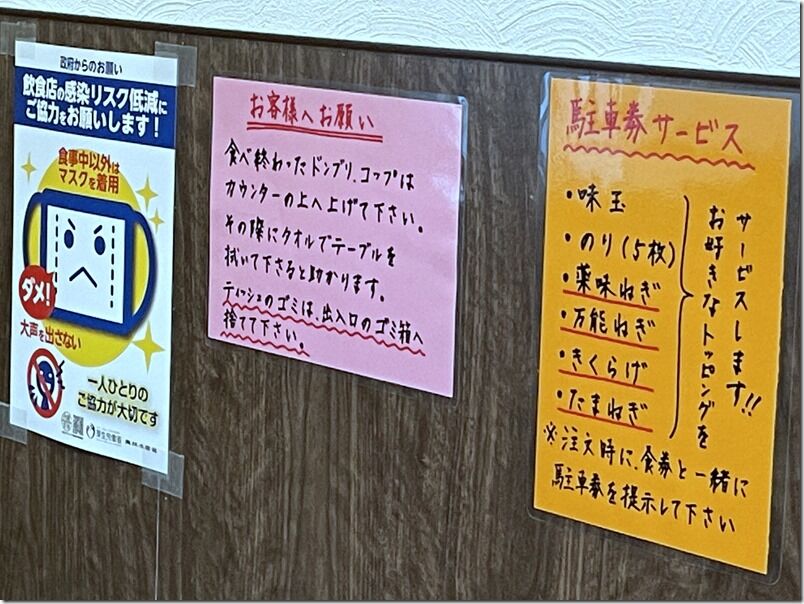 政府からのお願い
飲食店の感染リスク低減に
ご協力をお願いします！
食事中以外は
マスクを着用
ダメ!
大声を出さない
一人ひとりの
ご協力が大切です
厚生労働省
お客様へお願い
食べ終わったドンブリ、コップは
カウンターの上へ上げて下さい。
その際にタオルでテーブルを
拭いて下さると助かります。
ティッシュのゴミは、出入口のゴミ箱へ
捨てて下さい。
駐車券サービス
・味玉
・のり(5枚)
・薬味ねぎ
・万能ねぎ
・きくらげ
・たまねぎ
お好きなトッピングを
サービスします!!
※注文時に、食券と一緒に
駐車券を提示して下さい